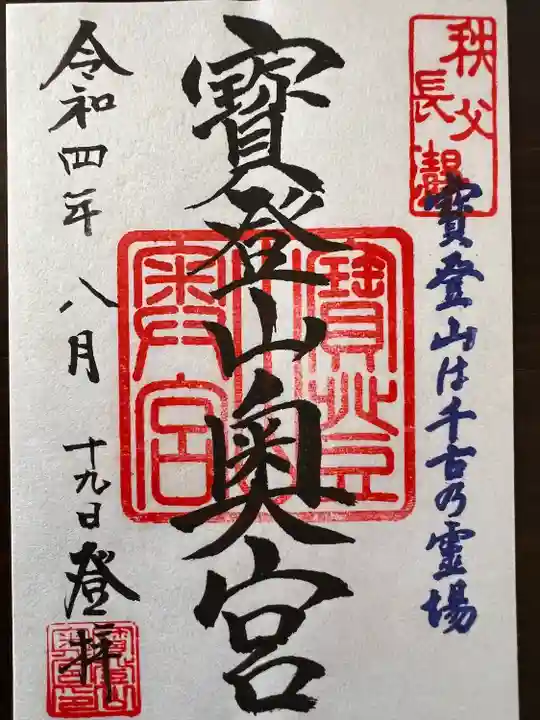 秩父
長瀞
寶登山は千古乃霊場
寶登山奥宮
令和四年八月十九日登拝